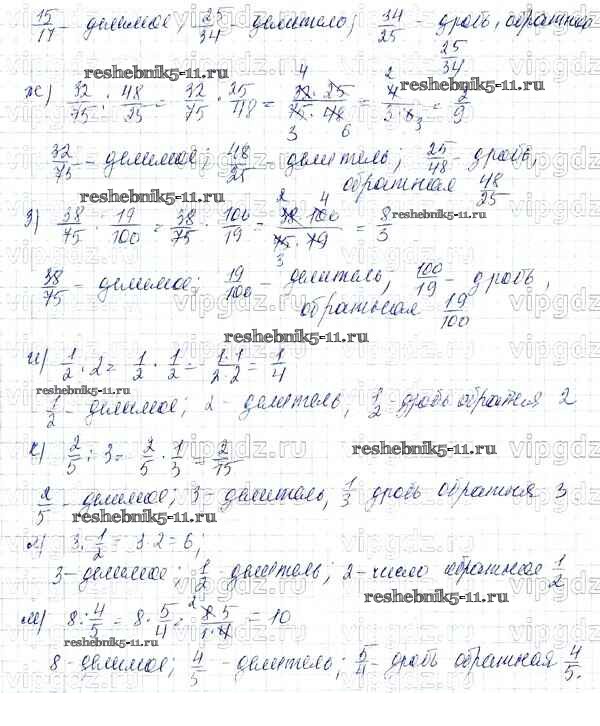 15/17 - делимое; 25/34 - делитель; 34/25 - дробь, обратная 25/34
reshebnik5-11.ru
ж) 32/75 : 48/25 = 32/75 · 25/48 = 32·25/75·48 = 4/3·6 = 2/9
32/75 - делимое; 48/25 - делитель; 25/48 - дробь,
обратная 48/25
reshebnik5-11.ru
reshebnik5-11.ru
з) 38/75 : 19/100 = 38/75 · 100/19 = 38·100/75·19 = 8/3
38/75 - делимое; 19/100 - делитель; 100/19 - дробь,
обратная 19/100
reshebnik5-11.ru
и) 1/2 : 2 = 1/2 · 1/2 = 1·1/2·2 = 1/4
reshebnik5-11.ru
1/2 - делимое; 2 - делитель; 1/2 дробь обратная 2
к) 2/5 : 3 = 2/5 · 1/3 = 2/15
reshebnik5-11.ru
2/5 - делимое; 3 - делитель; 1/3 дробь обратная 3
reshebnik5-11.ru
л) 3 : 1/2 = 3·2 = 6;
3 - делимое; 1/2 - делитель; 2 - число обратное 1/2
reshebnik5-11.ru
м) 8 : 4/5 = 8 · 5/4 = 8·5/1·4 = 10
reshebnik5-11.ru
8 - делимое; 4/5 - делитель; 5/4 - дробь обратная 4/5.
vipgdz.ru